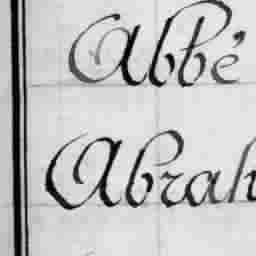 Abbé
Abrah